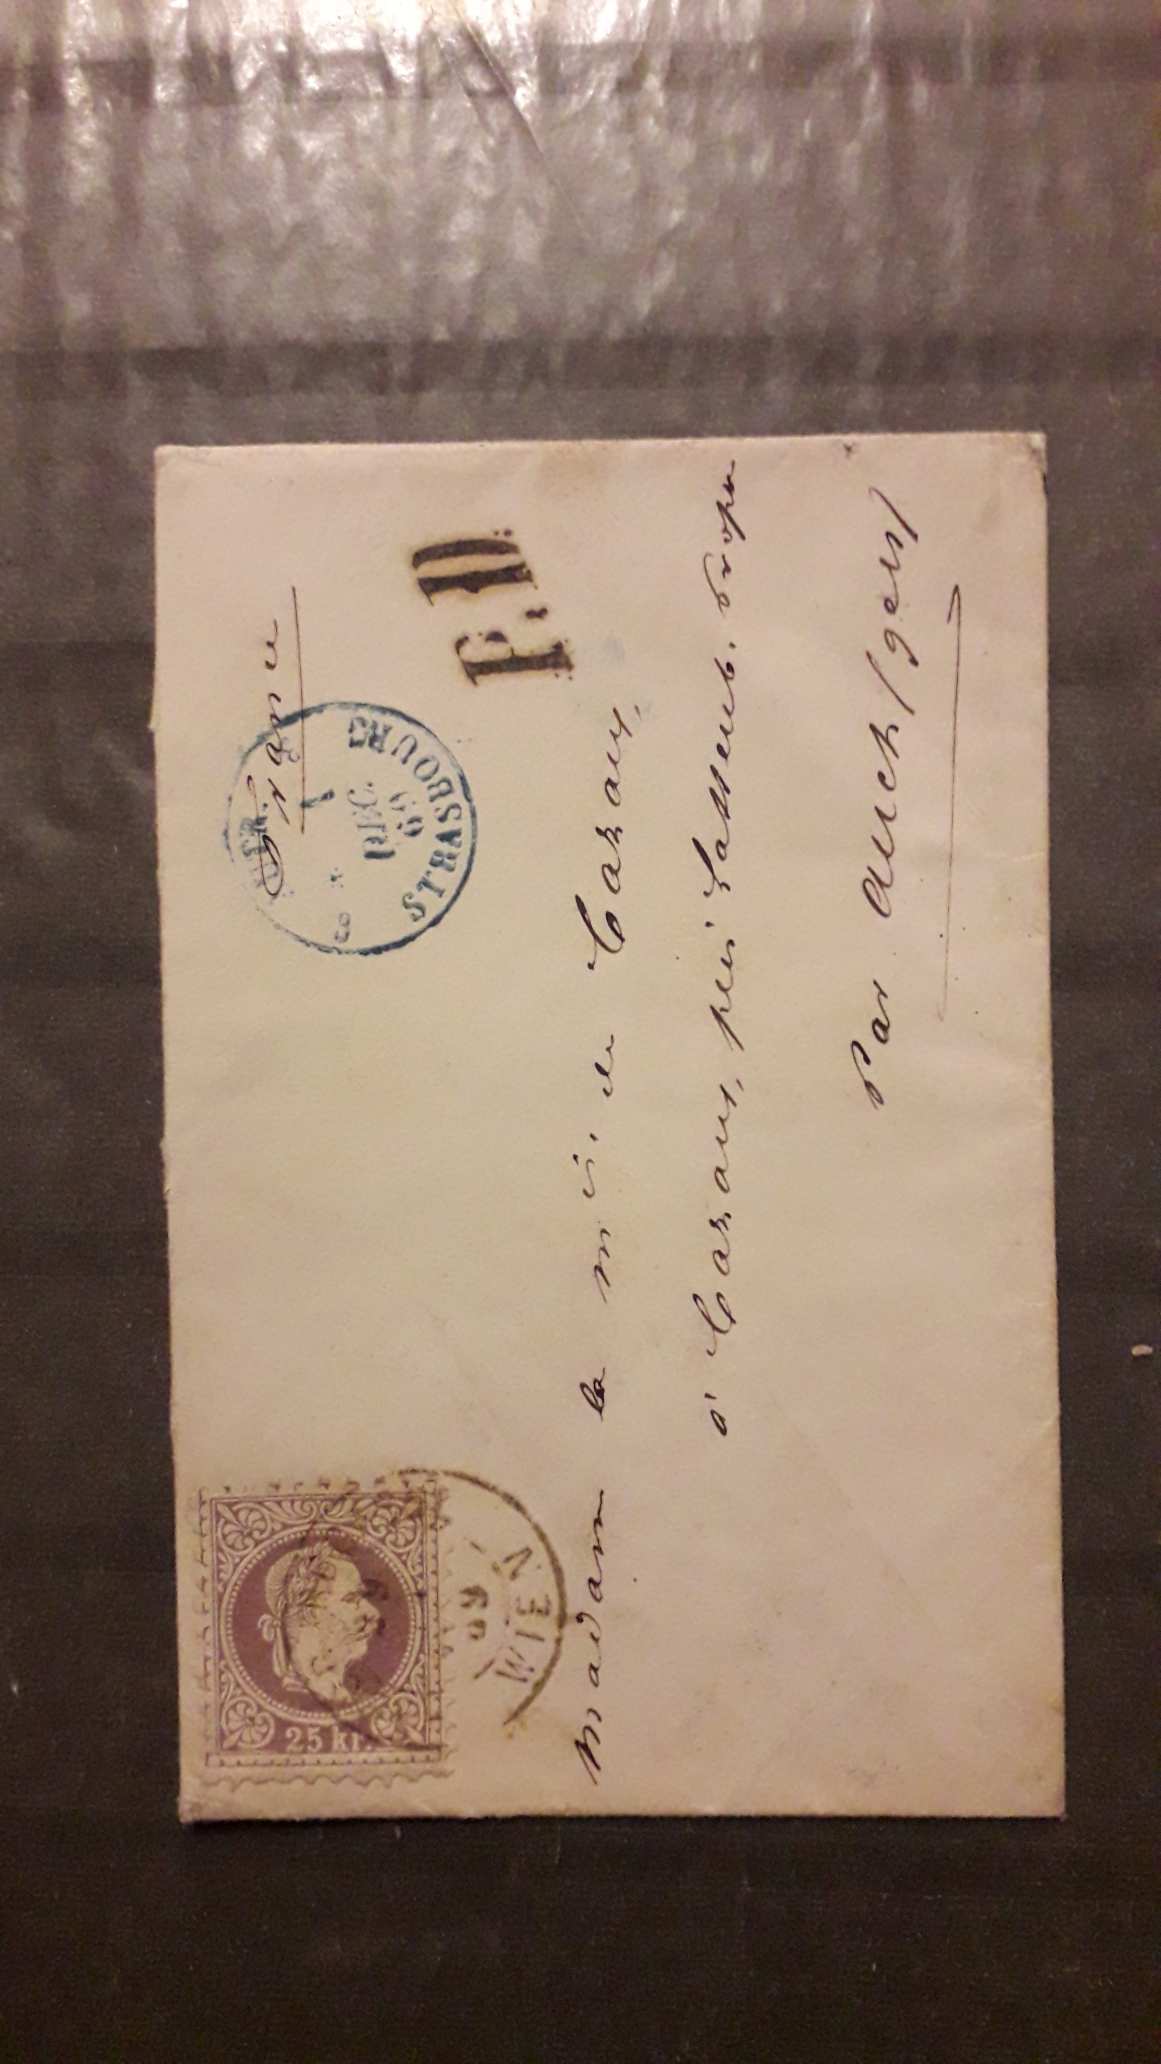 france
AUTR.
1
DEC.
69
STRASBOURG
P.D.
25 kr.
69
WIEN
Madame la mise de Cazaux,
à Cazaux, près
Par auch (gers)